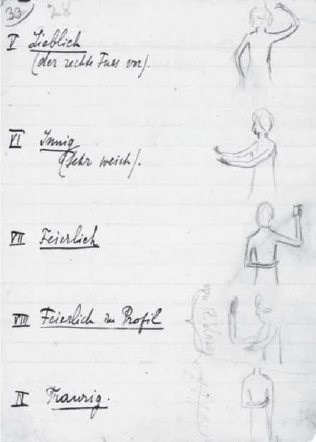 33 28
V Lieblich
(der rechte Fuss vor).
VI Innig
(Sehr weich).
VII Feierlich
VIII Feierlich im Profil
IX Traurig.